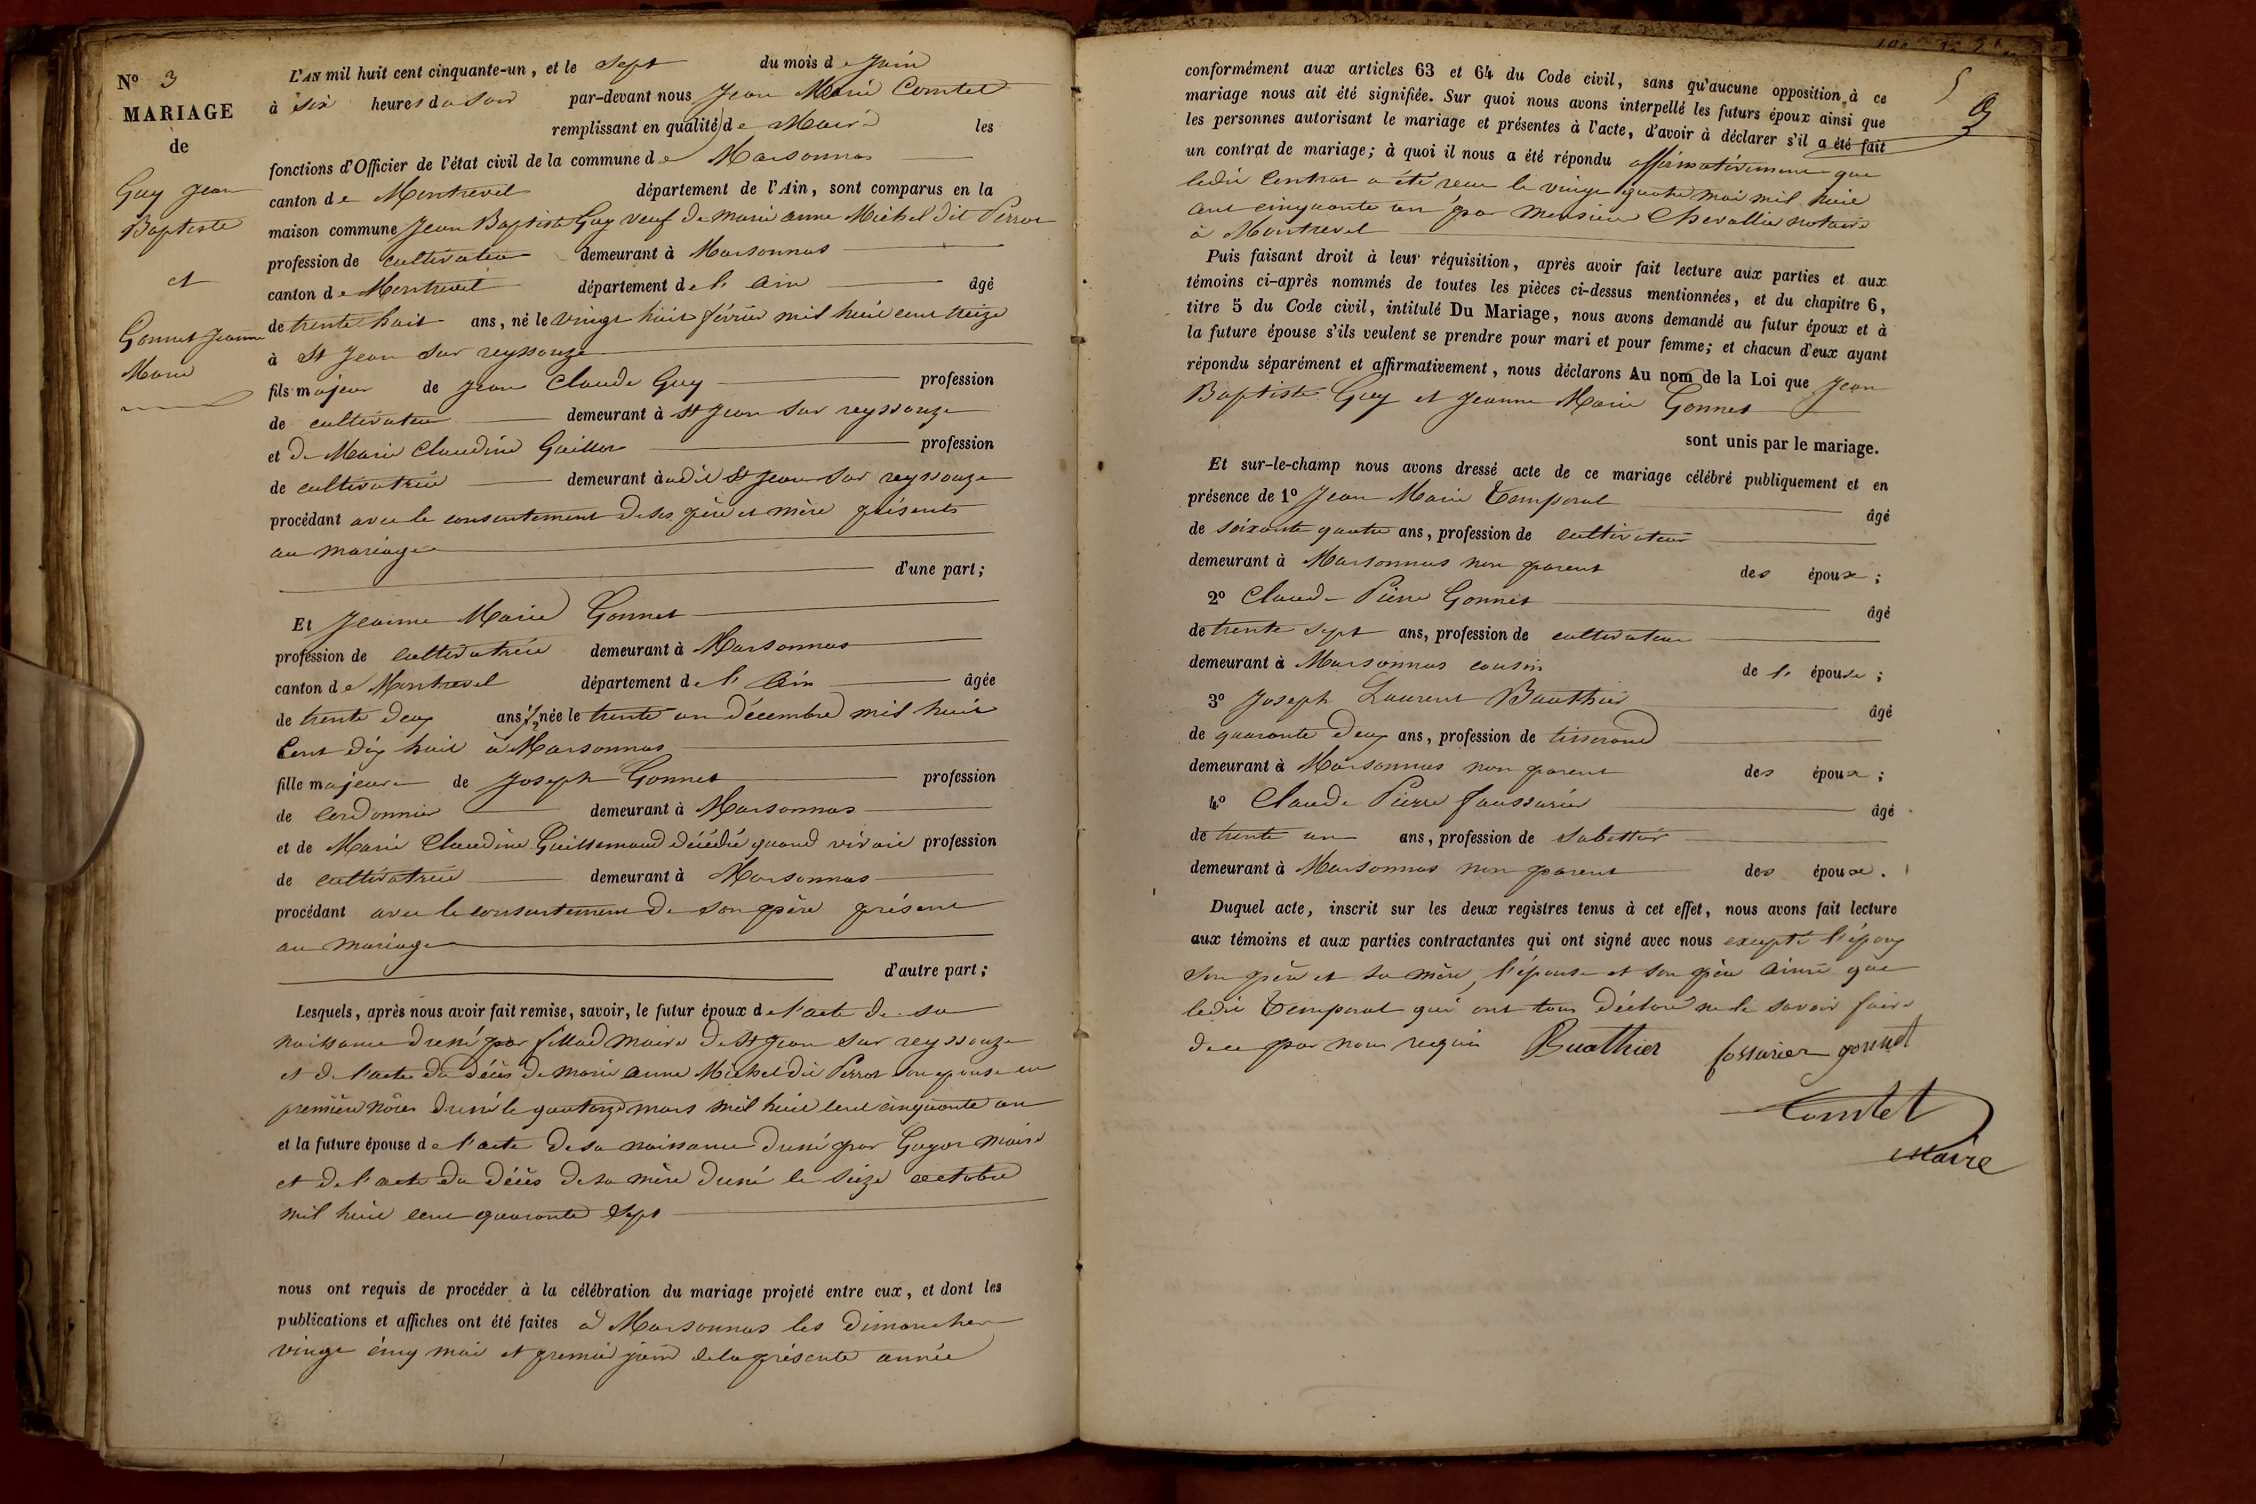 N° 3
MARIAGE
de
Guy Jean
Baptiste
et
Gonnet Jeanne
Marie
L'AN mil huit cent cinquante-un, et le Sept du mois de Juin
à Six heures du Soir par-devant nous Jean Marie Comtet
remplissant en qualité de Maire les
fonctions d'Officier de l'état civil de la commune de Marsonnas
canton de Montrevel département de l'Ain, sont comparus en la
maison commune Jean Baptiste Guy veuf de marie anne Michel dit Perrot
profession de cultivateur demeurant à Marsonnas
canton de Montrevel département de l'Ain âgé
de trente huit ans, né le vingt huit février mil huit cent treize
à St Jean sur reyssouze
fils majeur de Jean Claude Guy profession
de cultivateur demeurant à St Jean sur reyssouze
et de Marie Claudine profession
de cultivatrice demeurant audit St Jean sur reyssouze
procédant avec le consentement de ses père et mère présents
au mariage
d'une part;
Et Jeanne Marie Gonnet
profession de cultivatrice demeurant à Marsonnas
canton de Montrevel département de l'Ain âgée
de trente deux ans, née le trente un décembre mil huit
Cent dix huit à Marsonnas
fille majeure de Joseph Gonnet profession
de cordonnier demeurant à Marsonnas
et de Marie Claudine Guillemaud décédée quand vivait profession
de cultivatrice demeurant à Marsonnas
procédant avec le consentement de son père présent
au mariage
d'autre part;
Lesquels, après nous avoir fait remise, savoir, le futur époux de l'acte de sa
naissance dressé par maire de St Jean sur reyssouze
et de l'acte du décès de marie anne Michel dit Perrot son epouse en
première nôces dressé le quatorze mars mil huit cent cinquante un
et la future épouse de l'acte de sa naissance dressé par Goyon maire
et de l'acte du décès de sa mère dressé le Seize octobre
mil huit cent quarante Sept
nous ont requis de procéder à la célébration du mariage projeté entre eux, et dont les
publications et affiches ont été faites à Marsonnas les dimanches
vingt cinq mai et premier juin de la présente année
conformément aux articles 63 et 64 du Code civil, sans qu'aucune opposition à ce
mariage nous ait été signifiée. Sur quoi nous avons interpellé les futurs époux ainsi que
les personnes autorisant le mariage et présentes à l'acte, d'avoir à déclarer s'il a été fait
un contrat de mariage; à quoi il nous a été répondu affirmativement que
ledit Contrat a été reçu le vingt quatre mai mil huit
cent cinquante un par Monsieur Chevallier notaire
à Montrevel
Puis faisant droit à leur réquisition, après avoir fait lecture aux parties et aux
témoins ci-après nommés de toutes les pièces ci-dessus mentionnées, et du chapitre 6,
titre 5 du Code civil, intitulé Du Mariage, nous avons demandé au futur époux et à
la future épouse s'ils veulent se prendre pour mari et pour femme; et chacun d'eux ayant
répondu séparément et affirmativement, nous déclarons Au nom de la Loi que Jean
Baptiste Guy et Jeanne Marie Gonnet
sont unis par le mariage.
Et sur-le-champ nous avons dressé acte de ce mariage célébré publiquement et en
présence de 1° Jean Marie Temporal
âgé
de soixante quatre ans, profession de cultivateur
demeurant à Marsonnas non parent des époux;
2° Claude Pierre Gonnet
âgé
de trente sept ans, profession de cultivateur
demeurant à Marsonnas cousin de l'épouse;
3° Joseph Laurent Buathier
âgé
de quarante deux ans, profession de tisserand
demeurant à Marsonnas non parent des époux;
4° Claude Pierre Faussurier
âgé
de trente un ans, profession de sabottier
demeurant à Marsonnas non parent des époux.
Duquel acte, inscrit sur les deux registres tenus à cet effet, nous avons fait lecture
aux témoins et aux parties contractantes qui ont signé avec nous excepté l'époux
son père et sa mère, l'épouse et son père ainsi que
ledit Temporal qui ont tous déclaré ne le savoir faire
de ce par nous requis Buathier fossurier gonnet
Comtet
Maire